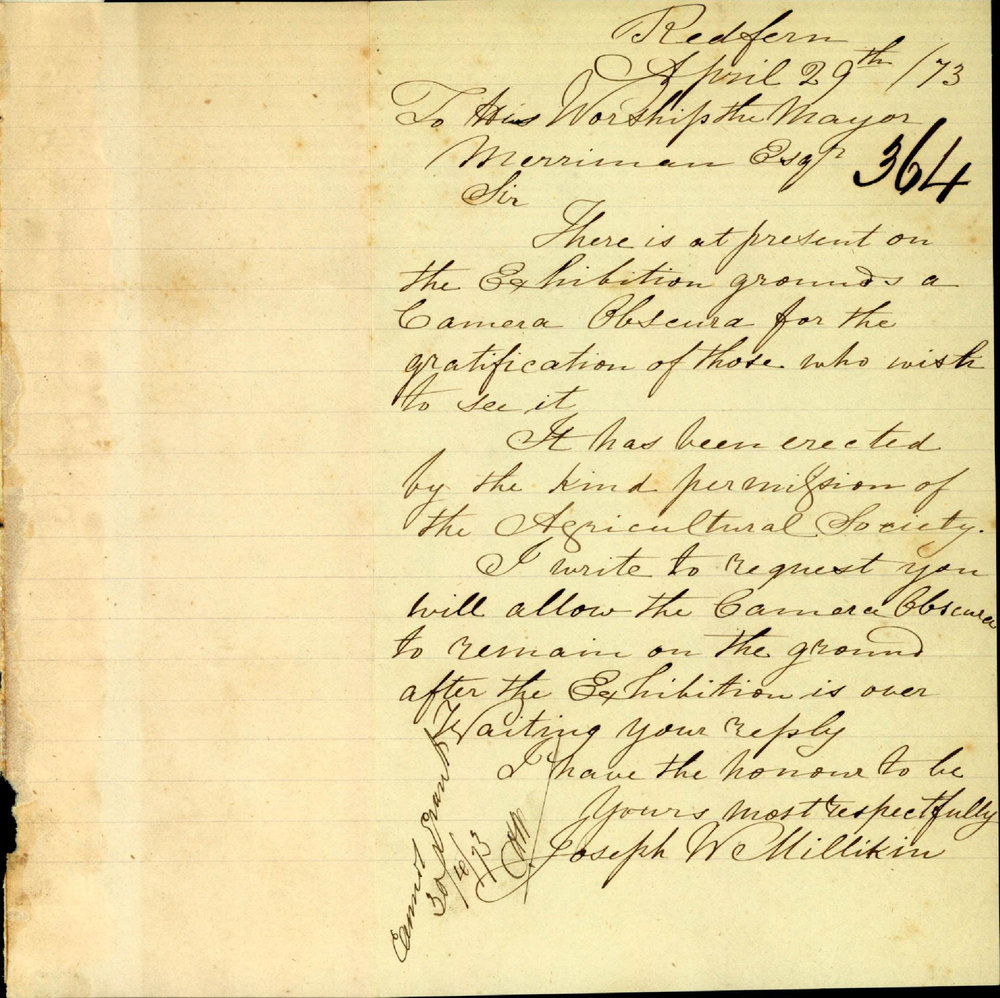 Redfern
April 29th /73
To His Worship the Mayor
Merriman Esqr
364
Sir
There is at present on
the Exhibition grounds a
Camera Obscura for the
gratification of those who wish
to see it
It has been erected
by the kind permission of
the Agricultural Society.
I write to request you
will allow the Camera Obscura
to remain on the ground
after the Exhibition is over
Waiting your reply
I have the honour to be
Yours most respectfully
Joseph W Millikin
Cannot grant
30/4/73